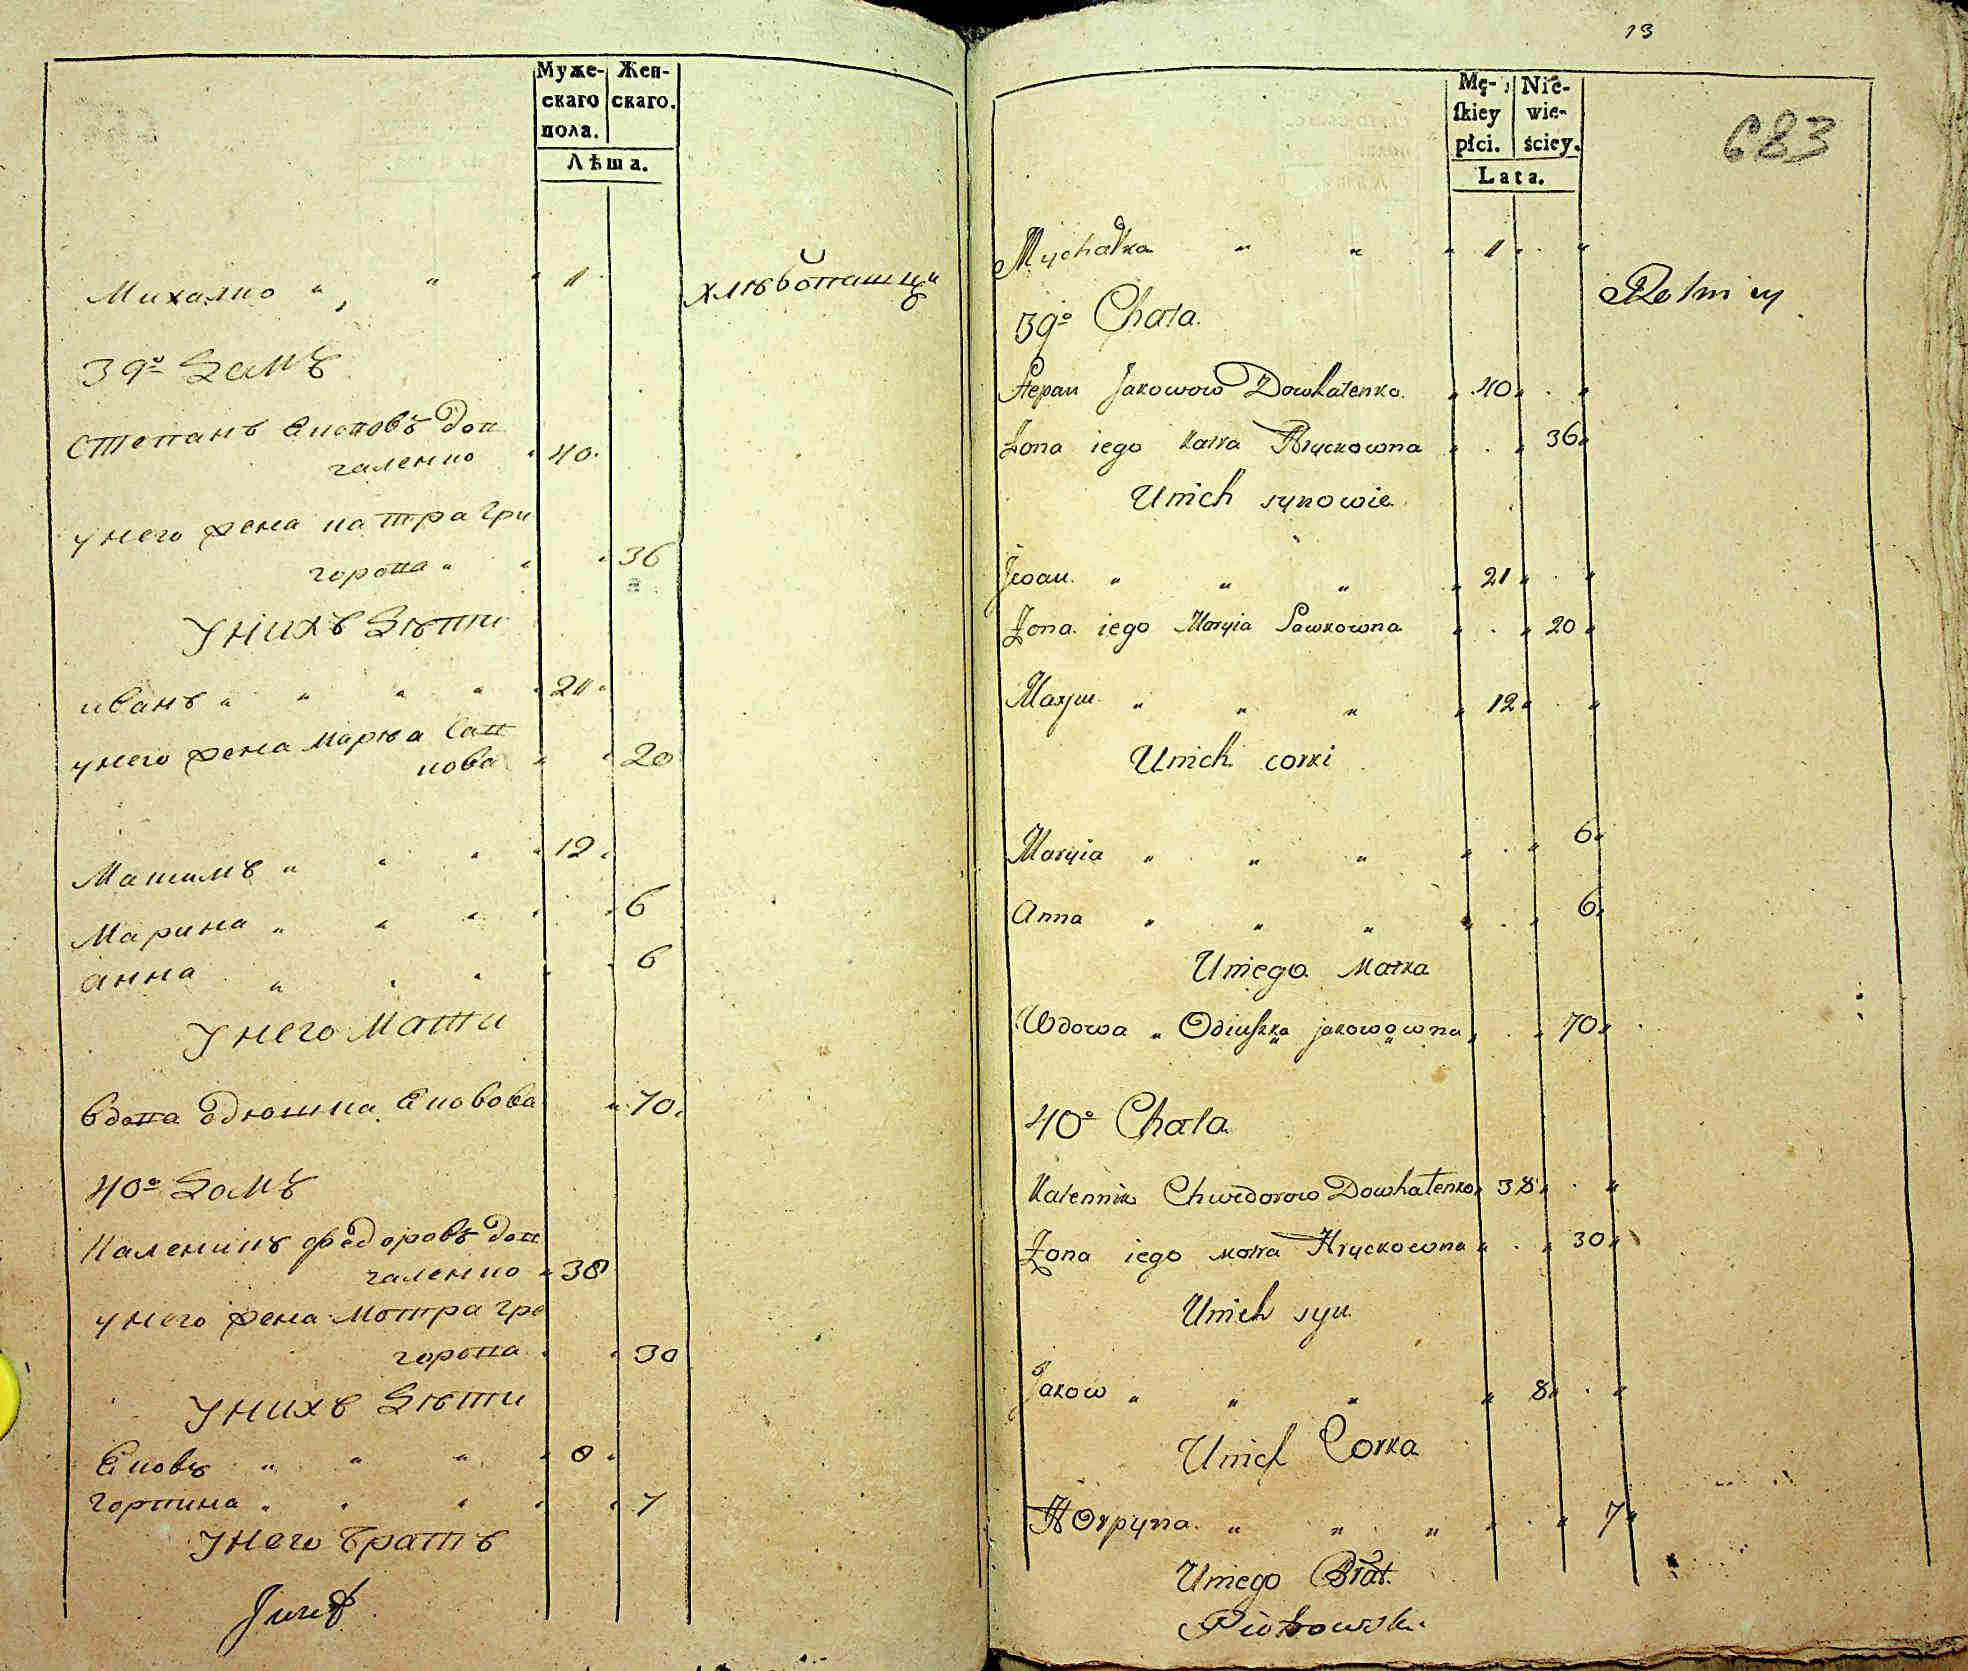 Муже- | Жен-
скаго | скаго.
пола.
Лѣта.
Михалко " " " 1 " хлѣбопашцы
39º Домъ
Степанъ Яковъ Дов
галенко " 40 "
у него жена Катра Гри
горова " " " 36
У нихъ Дѣти
иванъ " " " " " 21 "
у него жена Марья Сав
кова " " 20
Максимъ " " " " 12 "
Марина " " " " " 6
анна " " " " " 6
У него Мати
вдова Одюшка Яковова " 70 "
40º Домъ
Каленикъ Федоровъ Дов
галенко " 38
у него жена Мотра Гре
горова " " 30
У нихъ Дѣти
Яковъ " " " " 8 "
Горпина " " " " " 7
У него Братъ
13
683
Mę- | Nie-
ſkiey | wie-
płci. | ściey.
Lata.
Mychałka " " " 11 " . "
Rolnicy
39º Chata.
Stepan Jakowow Dowhalenko. " 40 " . "
Żona iego Katra Hryckowna " . " 36 "
Unich synowie
Jwan. " " " " 21 " . "
Żona iego Maryia Sawkowna " . " 20 "
Maxym " " " " 12 " . "
Unich corki
Maryia " " " " . " 6 "
Anna " " " " . " 6 "
Uniego Matka
Wdowa " Odiuszka jakowowna " . " 70 "
40º Chata
Kalennik Chwedorow Dowhalenko " 38 " . "
Żona iego motra Hryckowna " . " 30 "
Unich syn
Jakow " " " " 8 " . "
Unich Corka
Horpyna " " " " . " 7 "
Uniego Brat.
Piotrowski.